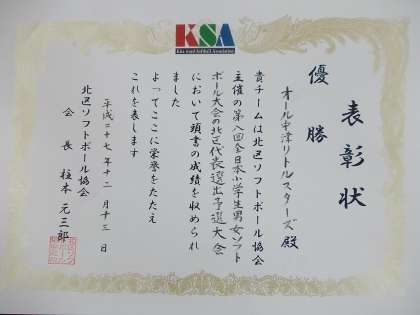 KSA
Kita ward Softball Association
表彰状
優勝
オール中津リトルスターズ殿
貴チームは北区ソフトボール協会
主催の第八回全日本小学生男女ソフト
ボール大会の北区代表選出予選大会
において頭書の成績を収められ
ました
よってここに栄誉をたたえ
これを表します
平成二十七年十二月十三日
北区ソフトボール協会
会長 柱本元三郎